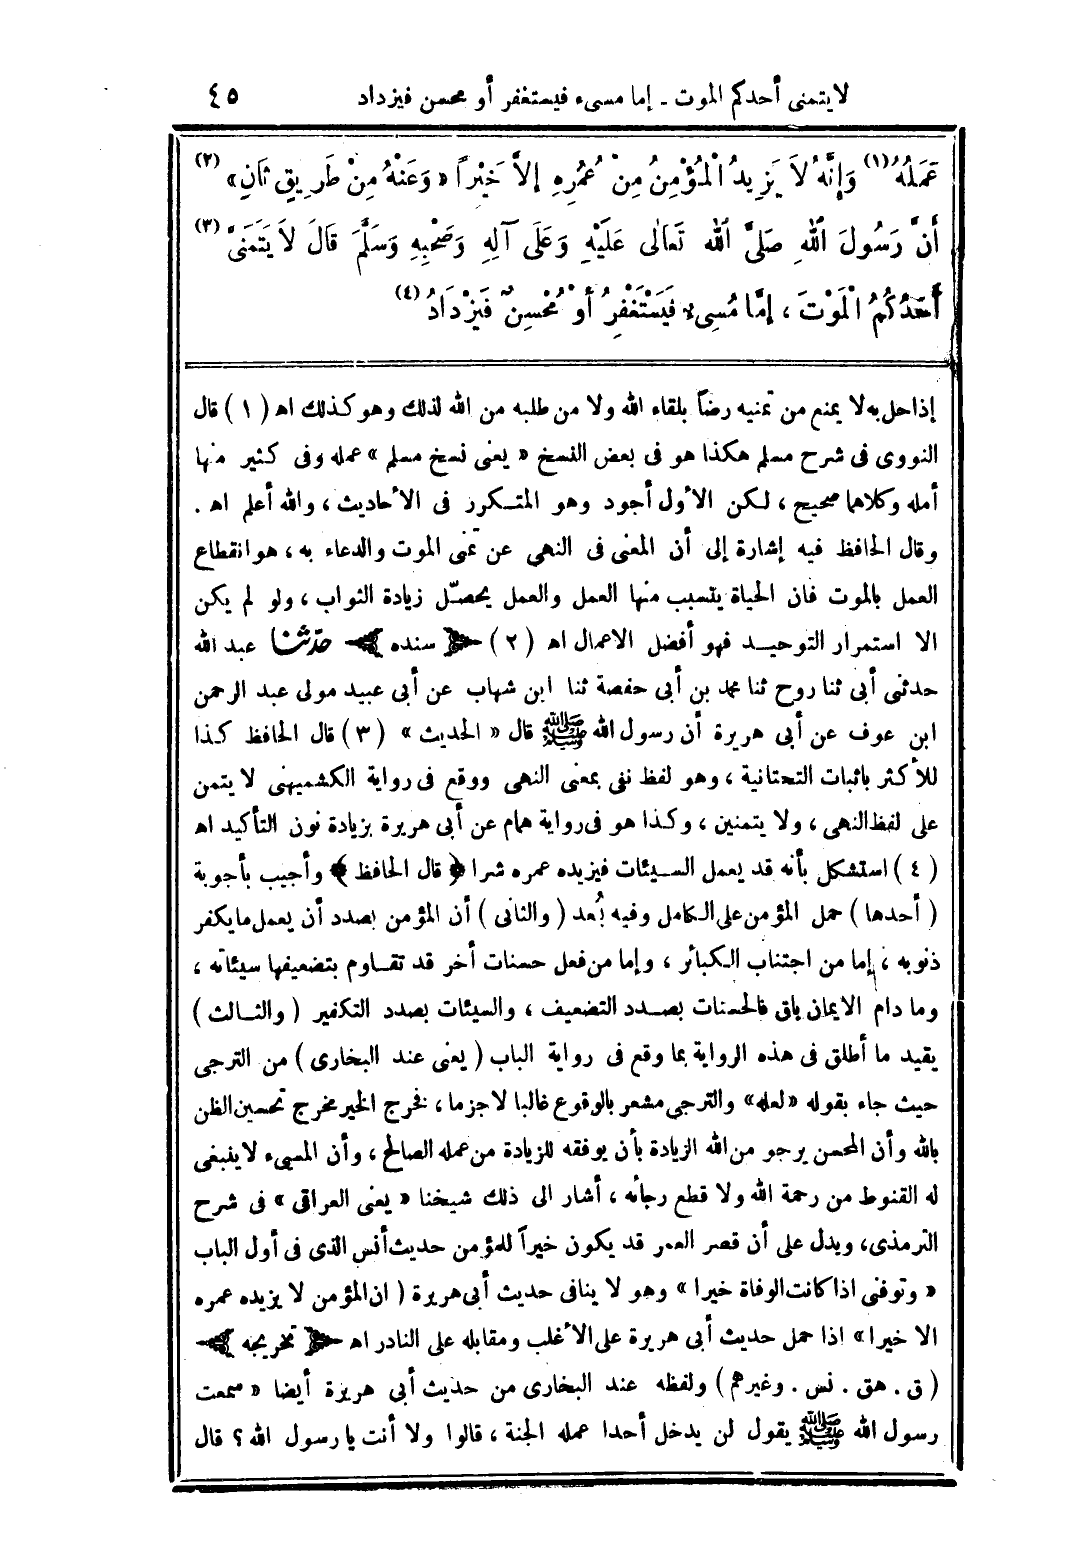 لا يتمنى أحدكم الموت - إما مسىء فيستغفر أو محسن فيزداد ٤٥
عَمَلُهُ (١) وَإِنَّهُ لاَ يَزِيدُ الْمُؤْمِنُ مِنْ عُمُرِهِ إلاَّ خَيْراً «وَعَنْهُ مِنْ طَرِيقٍ ثَانٍ» (٢)
أَنَّ رَسُولَ اللهِ صَلَّى اللهُ تَعَالٰى عَلَيْهِ وَعَلَى آلِهِ وَصَحْبِهِ وَسَلَّمَ قَالَ لاَ يَتَمَنَّى (٣)
أَحَدُكُمُ الْمَوْتَ ، إِمَّا مُسِىءٌ فَيَسْتَغْفِرُ أَوْ مُحْسِنٌ فَيَزْدَادُ (٤)
إذا حل به لا يمنع من تمنيه رضاً بلقاء الله ولا من طلبه من الله لذلك وهو كذلك اه (١) قال
النووى فى شرح مسلم هكذا هو فى بعض النسخ «يعنى نسخ مسلم» عمله وفى كثير منها
أمله وكلاهما صحيح ، لكن الأول أجود وهو المتكرر فى الأحاديث ، والله أعلم اه .
وقال الحافظ فيه إشارة إلى أن المعنى فى النهى عن تمنى الموت والدعاء به ، هو انقطاع
العمل بالموت فان الحياة يتسبب منها العمل والعمل يحصّل زيادة الثواب ، ولو لم يكن
الا استمرار التوحيد فهو أفضل الاعمال اه (٢) ﴿ سنده ﴾ حدّثنا عبد الله
حدثنى أبى ثنا روح ثنا محمد بن أبى حفصة ثنا ابن شهاب عن أبى عبيد مولى عبد الرحمن
ابن عوف عن أبى هريرة أن رسول الله ﷺ قال «الحديث» (٣) قال الحافظ كذا
للأكثر باثبات التحتانية ، وهو لفظ نفى بمعنى النهى ووقع فى رواية الكشميهنى لا يتمن
على لفظ النهى ، ولا يتمنين ، وكذا هو فى رواية همام عن أبى هريرة بزيادة نون التأكيد اه
(٤) استشكل بأنه قد يعمل السيئات فيزيده عمره شرا ﴿ قال الحافظ ﴾ وأجيب بأجوبة
(أحدها) حمل المؤمن على الكامل وفيه بُعد (والثانى) أن المؤمن بصدد أن يعمل ما يكفر
ذنوبه ، إما من اجتناب الكبائر ، وإما من فعل حسنات أخر قد تقاوم بتضعيفها سيئاته ،
وما دام الايمان باق فالحسنات بصدد التضعيف ، والسيئات بصدد التكفير (والثالث)
يقيد ما أطلق فى هذه الرواية بما وقع فى رواية الباب (يعنى عند البخارى) من الترجى
حيث جاء بقوله «لعله» والترجى مشعر بالوقوع غالبا لا جزما ، فخرج الخير مخرج تحسين الظن
بالله وأن المحسن يرجو من الله الزيادة بأن يوفقه للزيادة من عمله الصالح ، وأن المسىء لا ينبغى
له القنوط من رحمة الله ولا قطع رجائه ، أشار الى ذلك شيخنا «يعنى العراقى» فى شرح
الترمذى ، ويدل على أن قصر العمر قد يكون خيراً للمؤمن حديث أنس الذى فى أول الباب
«وتوفنى اذا كانت الوفاة خيرا» وهو لا ينافى حديث أبى هريرة (ان المؤمن لا يزيده عمره
الا خيرا» اذا حمل حديث أبى هريرة على الأغلب ومقابله على النادر اه ﴿ تخريجه ﴾
(ق . هق . نس . وغيرهم) ولفظه عند البخارى من حديث أبى هريرة أيضا «سمعت
رسول الله ﷺ يقول لن يدخل أحدا عمله الجنة ، قالوا ولا أنت يا رسول الله ؟ قال